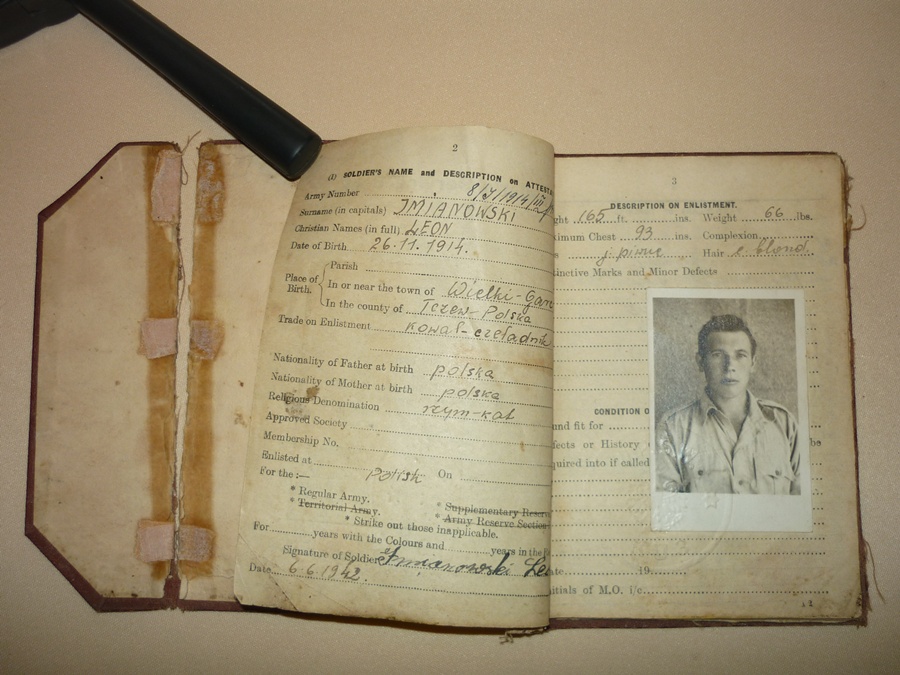 2
(I) SOLDIER'S NAME and DESCRIPTION on ATTEST
Army Number 8/J/1914/III
Surname (in capitals) IMIANOWSKI
Christian Names (in full) LEON
Date of Birth 26.11.1914.
Place of Birth.
Parish
In or near the town of Wielki-Gan
In the county of Tczew-Polska
Trade on Enlistment kowal-czeladnik
Nationality of Father at birth polska
Nationality of Mother at birth polska
Religious Denomination rzym-kat
Approved Society
Membership No.
Enlisted at On
For the :— Polish
* Regular Army.
* Territorial Army.
* Supplementary Reserve
* Army Reserve Section
* Strike out those inapplicable.
For years with the Colours and years in the
Signature of Soldier Imianowski Le
Date 6.6.1942.
3
DESCRIPTION ON ENLISTMENT.
ght 165 ft. ins. Weight 66 lbs.
ximum Chest 93 ins. Complexion
s j. piwne Hair c. blond.
tinctive Marks and Minor Defects
CONDITION O
und fit for
fects or History
quired into if called
ate 19
nitials of M.O. i/c